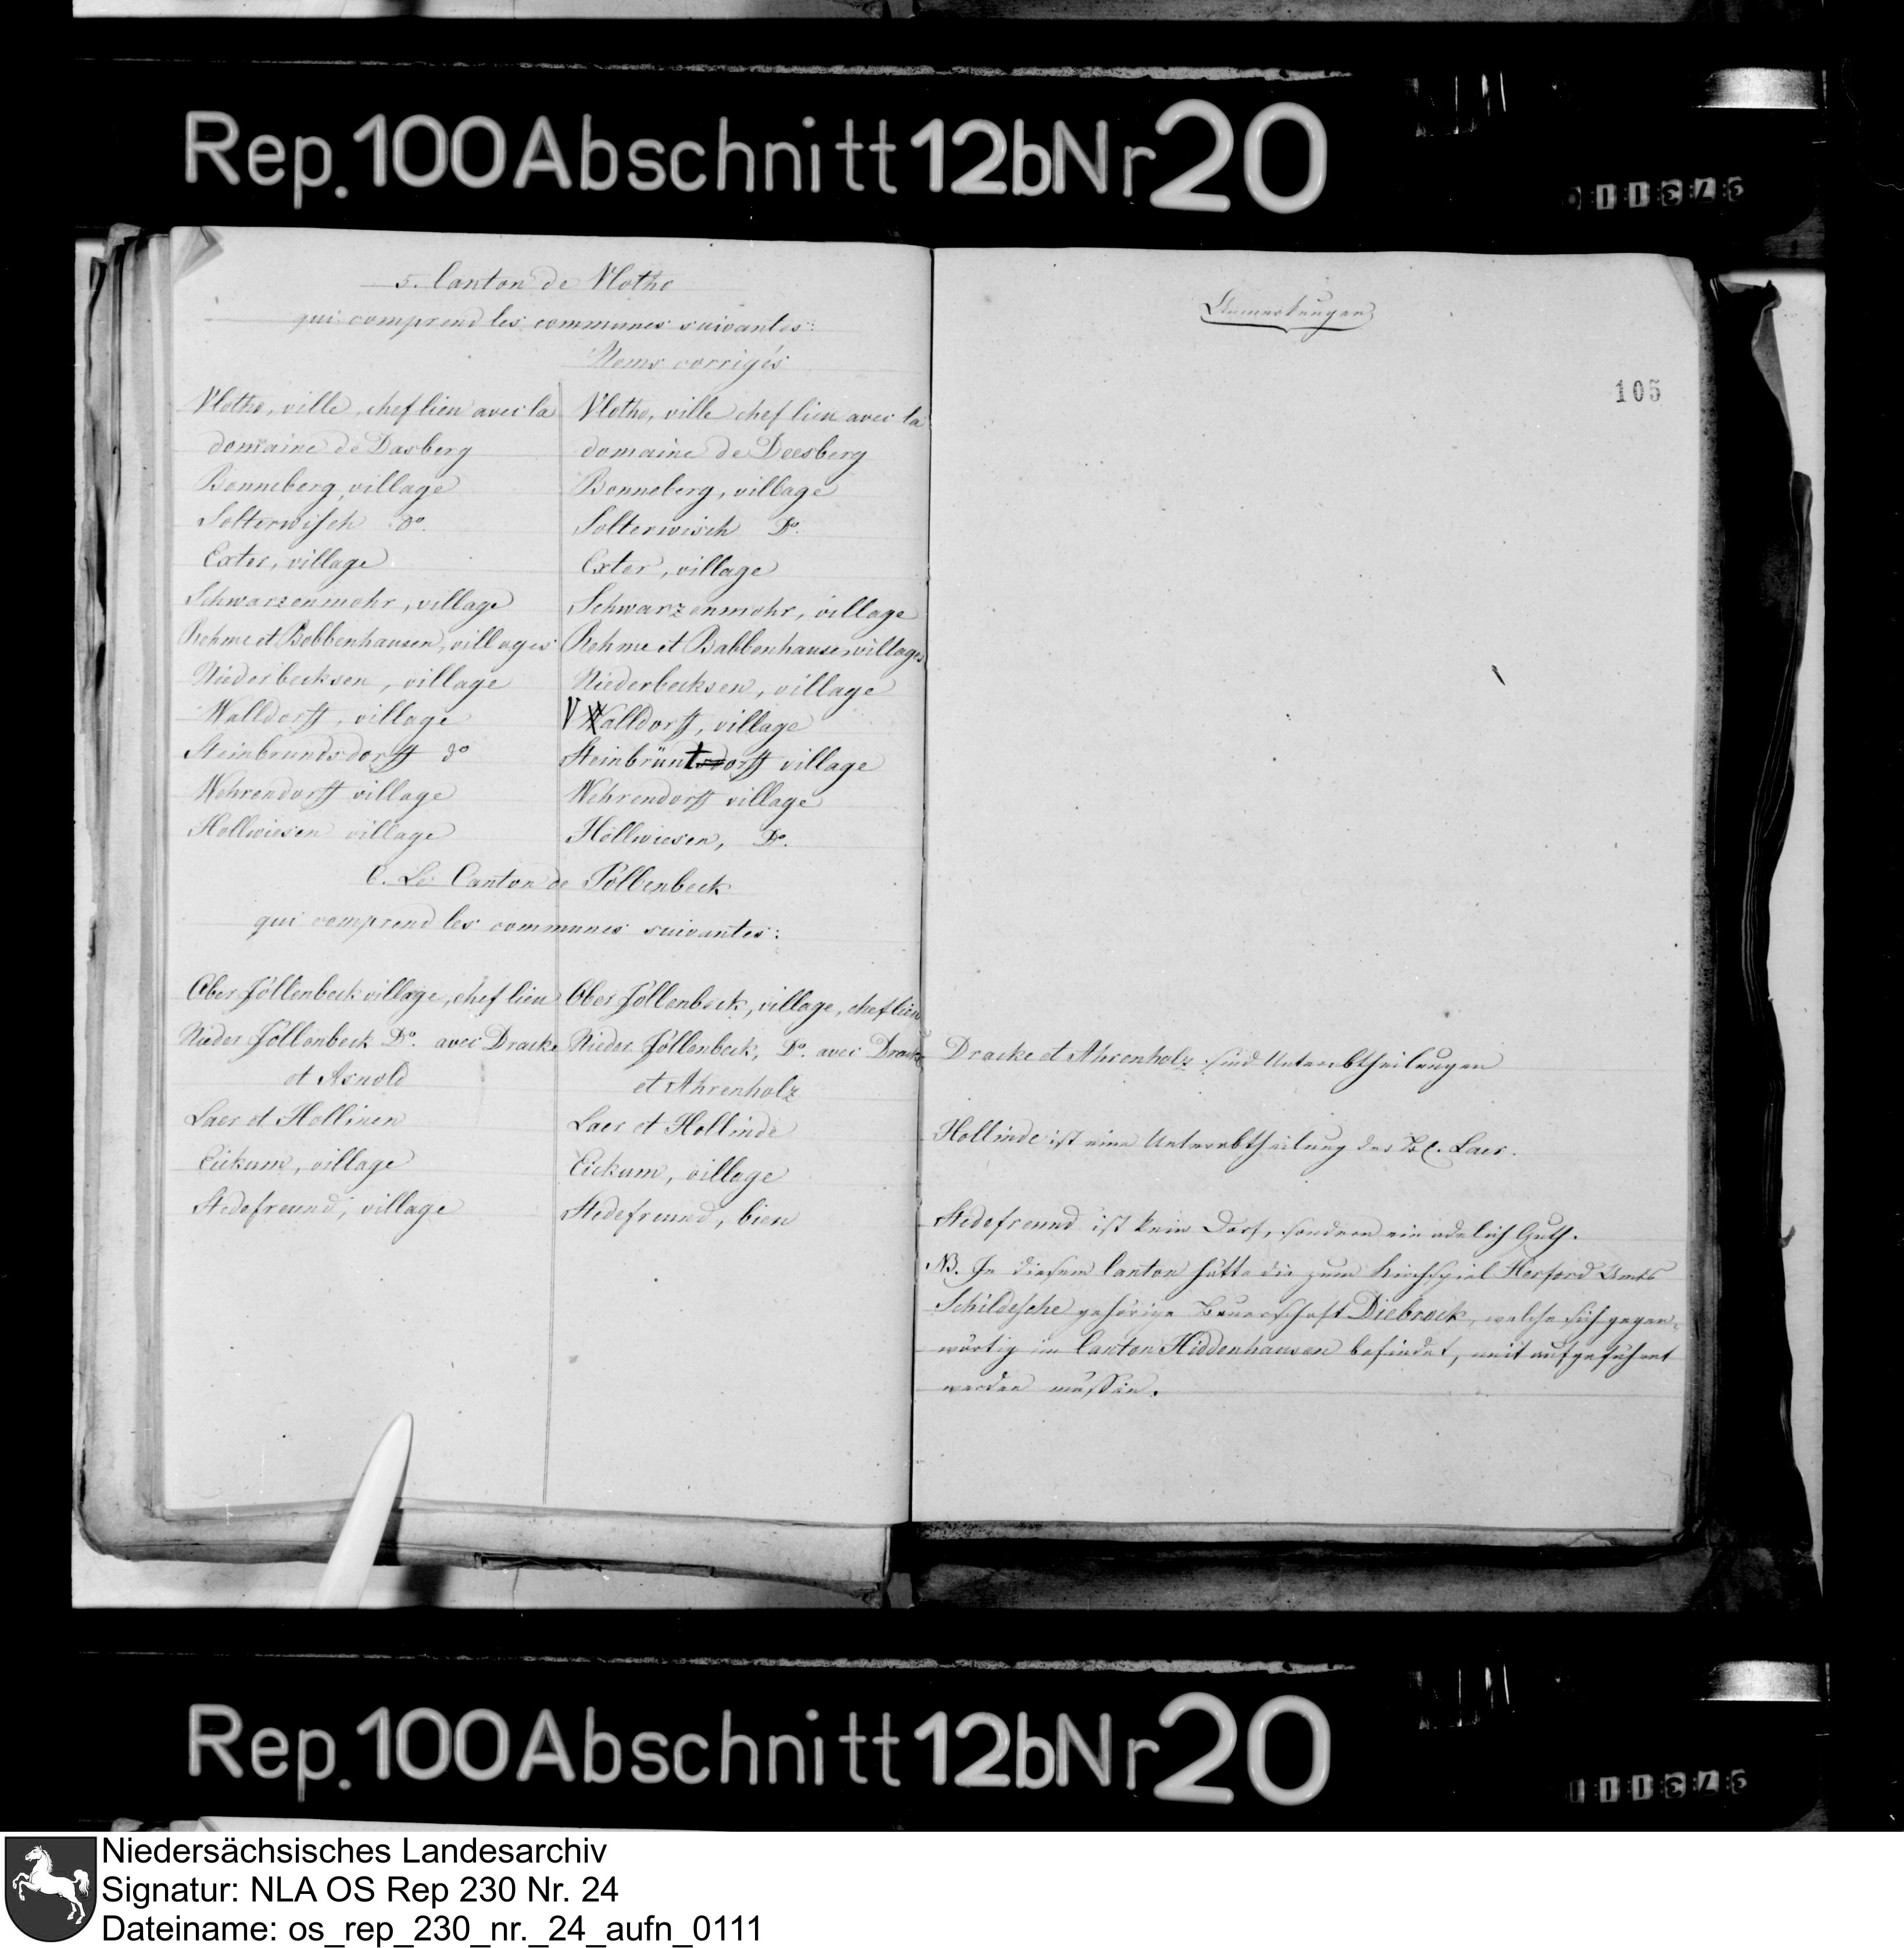 Rep. 100 Abschnitt 12b Nr 20
5. Canton de Vlotho
qui comprend les communes suivantes:
Noms corrigés
Vlotho, ville, chef lieu avec la
domaine de Dasberg
Bonneberg, village
Solterwisch do.
Exter, village
Schwarzenmohr, village
Rehme et Bobbenhausen, villages
Niederbecksen, village
Walldorff, village
Steinbrundsdorff do
Wehrendorff village
Hollwiesen village
Vlotho, ville chef lieu avec la
domaine de Deesberg
Bonneberg, village
Solterwisch Do.
Exter, village
Schwarzenmohr, village
Rehme et Babbenhausen villages
Niederbecksen, village
V Walldorff, village
Steinbrüntsdorff village
Wehrendorff village
Hollwiesen, Do.
6. Le Canton de Jöllenbeck
qui comprend les communes suivantes:
Ober Jöllenbeck village, chef lieu
Nieder Jöllenbeck Do. avec Dracke
et Arnold
Laer et Hollinen
Eickum, village
Stedefreund, village
Ober Jöllenbeck, village, chef lieu
Nieder Jöllenbeck, Do. avec Dracke
et Ahrenholz
Laer et Hollinde
Eickum, village
Stedefreund, bien
Anmerkungen
105
Dracke et Ahrenholz sind Unterabtheilungen
Hollinde ist eine Unterabtheilung der Laer.
Stedefreund ist kein Dorf, sondern ein adelich Guth.
NB. In diesem Canton hätte die zum Kirchspiel Herford Amts
Schildesche gehörige Bauerschaft Diebrock, welche sich gegen-
wärtig im Canton Hiddenhausen befindet, mit aufgeführt
werden müssen.
Rep. 100 Abschnitt 12b Nr 20
Niedersächsisches Landesarchiv
Signatur: NLA OS Rep 230 Nr. 24
Dateiname: os_rep_230_nr._24_aufn_0111